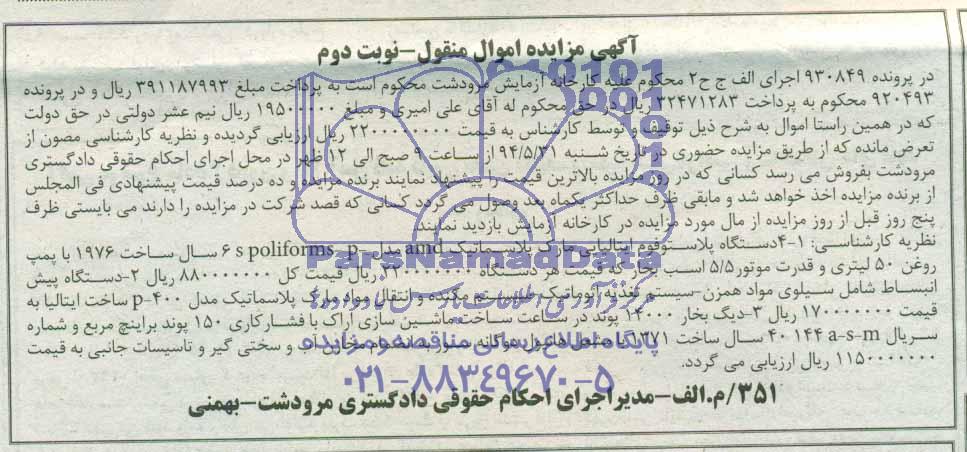 آگهی مزایده اموال منقول-نوبت دوم
در پرونده ۹۳۰۸۴۹ اجرای الف ج ح۲ محکوم علیه کارخانه آزمایش مرودشت محکوم است به پرداخت مبلغ ۳۹۱۱۸۷۹۹۳ ریال و در پرونده
۹۲۰۴۹۳ محکوم به پرداخت ۳۲۴۷۱۲۸۳ ریال در حق محکوم له آقای علی امیری و مبلغ ۱۹۵۰۰۰۰۰ ریال نیم عشر دولتی در حق دولت
که در همین راستا اموال به شرح ذیل توقیف و توسط کارشناس به قیمت ۲۲۰۰۰۰۰۰۰۰ ریال ارزیابی گردیده و نظریه کارشناسی مصون از
تعرض مانده که از طریق مزایده حضوری در تاریخ شنبه ۹۴/۵/۳۱ از ساعت ۹ صبح الی ۱۲ ظهر در محل اجرای احکام حقوقی دادگستری
مرودشت بفروش می رسد کسانی که در روز مزایده بالاترین قیمت را پیشنهاد نمایند برنده مزایده و ده درصد قیمت پیشنهادی فی المجلس
از برنده مزایده اخذ خواهد شد و مابقی ظرف حداکثر یکماه بعد وصول می گردد کسانی که قصد شرکت در مزایده را دارند می بایستی ظرف
پنج روز قبل از روز مزایده از مال مورد مزایده در کارخانه آزمایش بازدید نمایند
نظریه کارشناسی: ۱-۴دستگاه پلاستوفوم ایتالیایی مارک پلاسماتیک and مدل p- s poliforms ۶ سال ساخت ۱۹۷۶ با پمپ
روغن ۵۰ لیتری و قدرت موتور۵/۵ اسب بخار که قیمت هر دستگاه ۲۲۰۰۰۰۰۰۰ ریال قیمت کل ۸۸۰۰۰۰۰۰۰ ریال ۲-دستگاه پیش
انبساط شامل سیلوی مواد همزن-سیستم تغذیه اتوماتیک سیستم مکنده و انتقال مواد مارک پلاسماتیک مدل p-۴۰۰ ساخت ایتالیا به
قیمت ۱۷۰۰۰۰۰۰۰ ریال ۳-دیگ بخار ۱۴۰۰۰ پوند در ساعت ساخت ماشین سازی اراک با فشار کاری ۱۵۰ پوند براینچ مربع و شماره
سریال a-s-m ۴۰۱۴۴ سال ساخت ۱۳۷۱ با مشعل هامول دوگانه سوز به انضمام مخازن آب و سختی گیر و تاسیسات جانبی به قیمت
۱۱۵۰۰۰۰۰۰۰ ریال ارزیابی می گردد.
۳۵۱/م.الف-مدیر اجرای احکام حقوقی دادگستری مرودشت-بهمنی
ParsNamadData
پایگاه اطلاع رسانی مناقصه و مزایده
۰۲۱-۸۸۳۴۹۶۷۰-۵